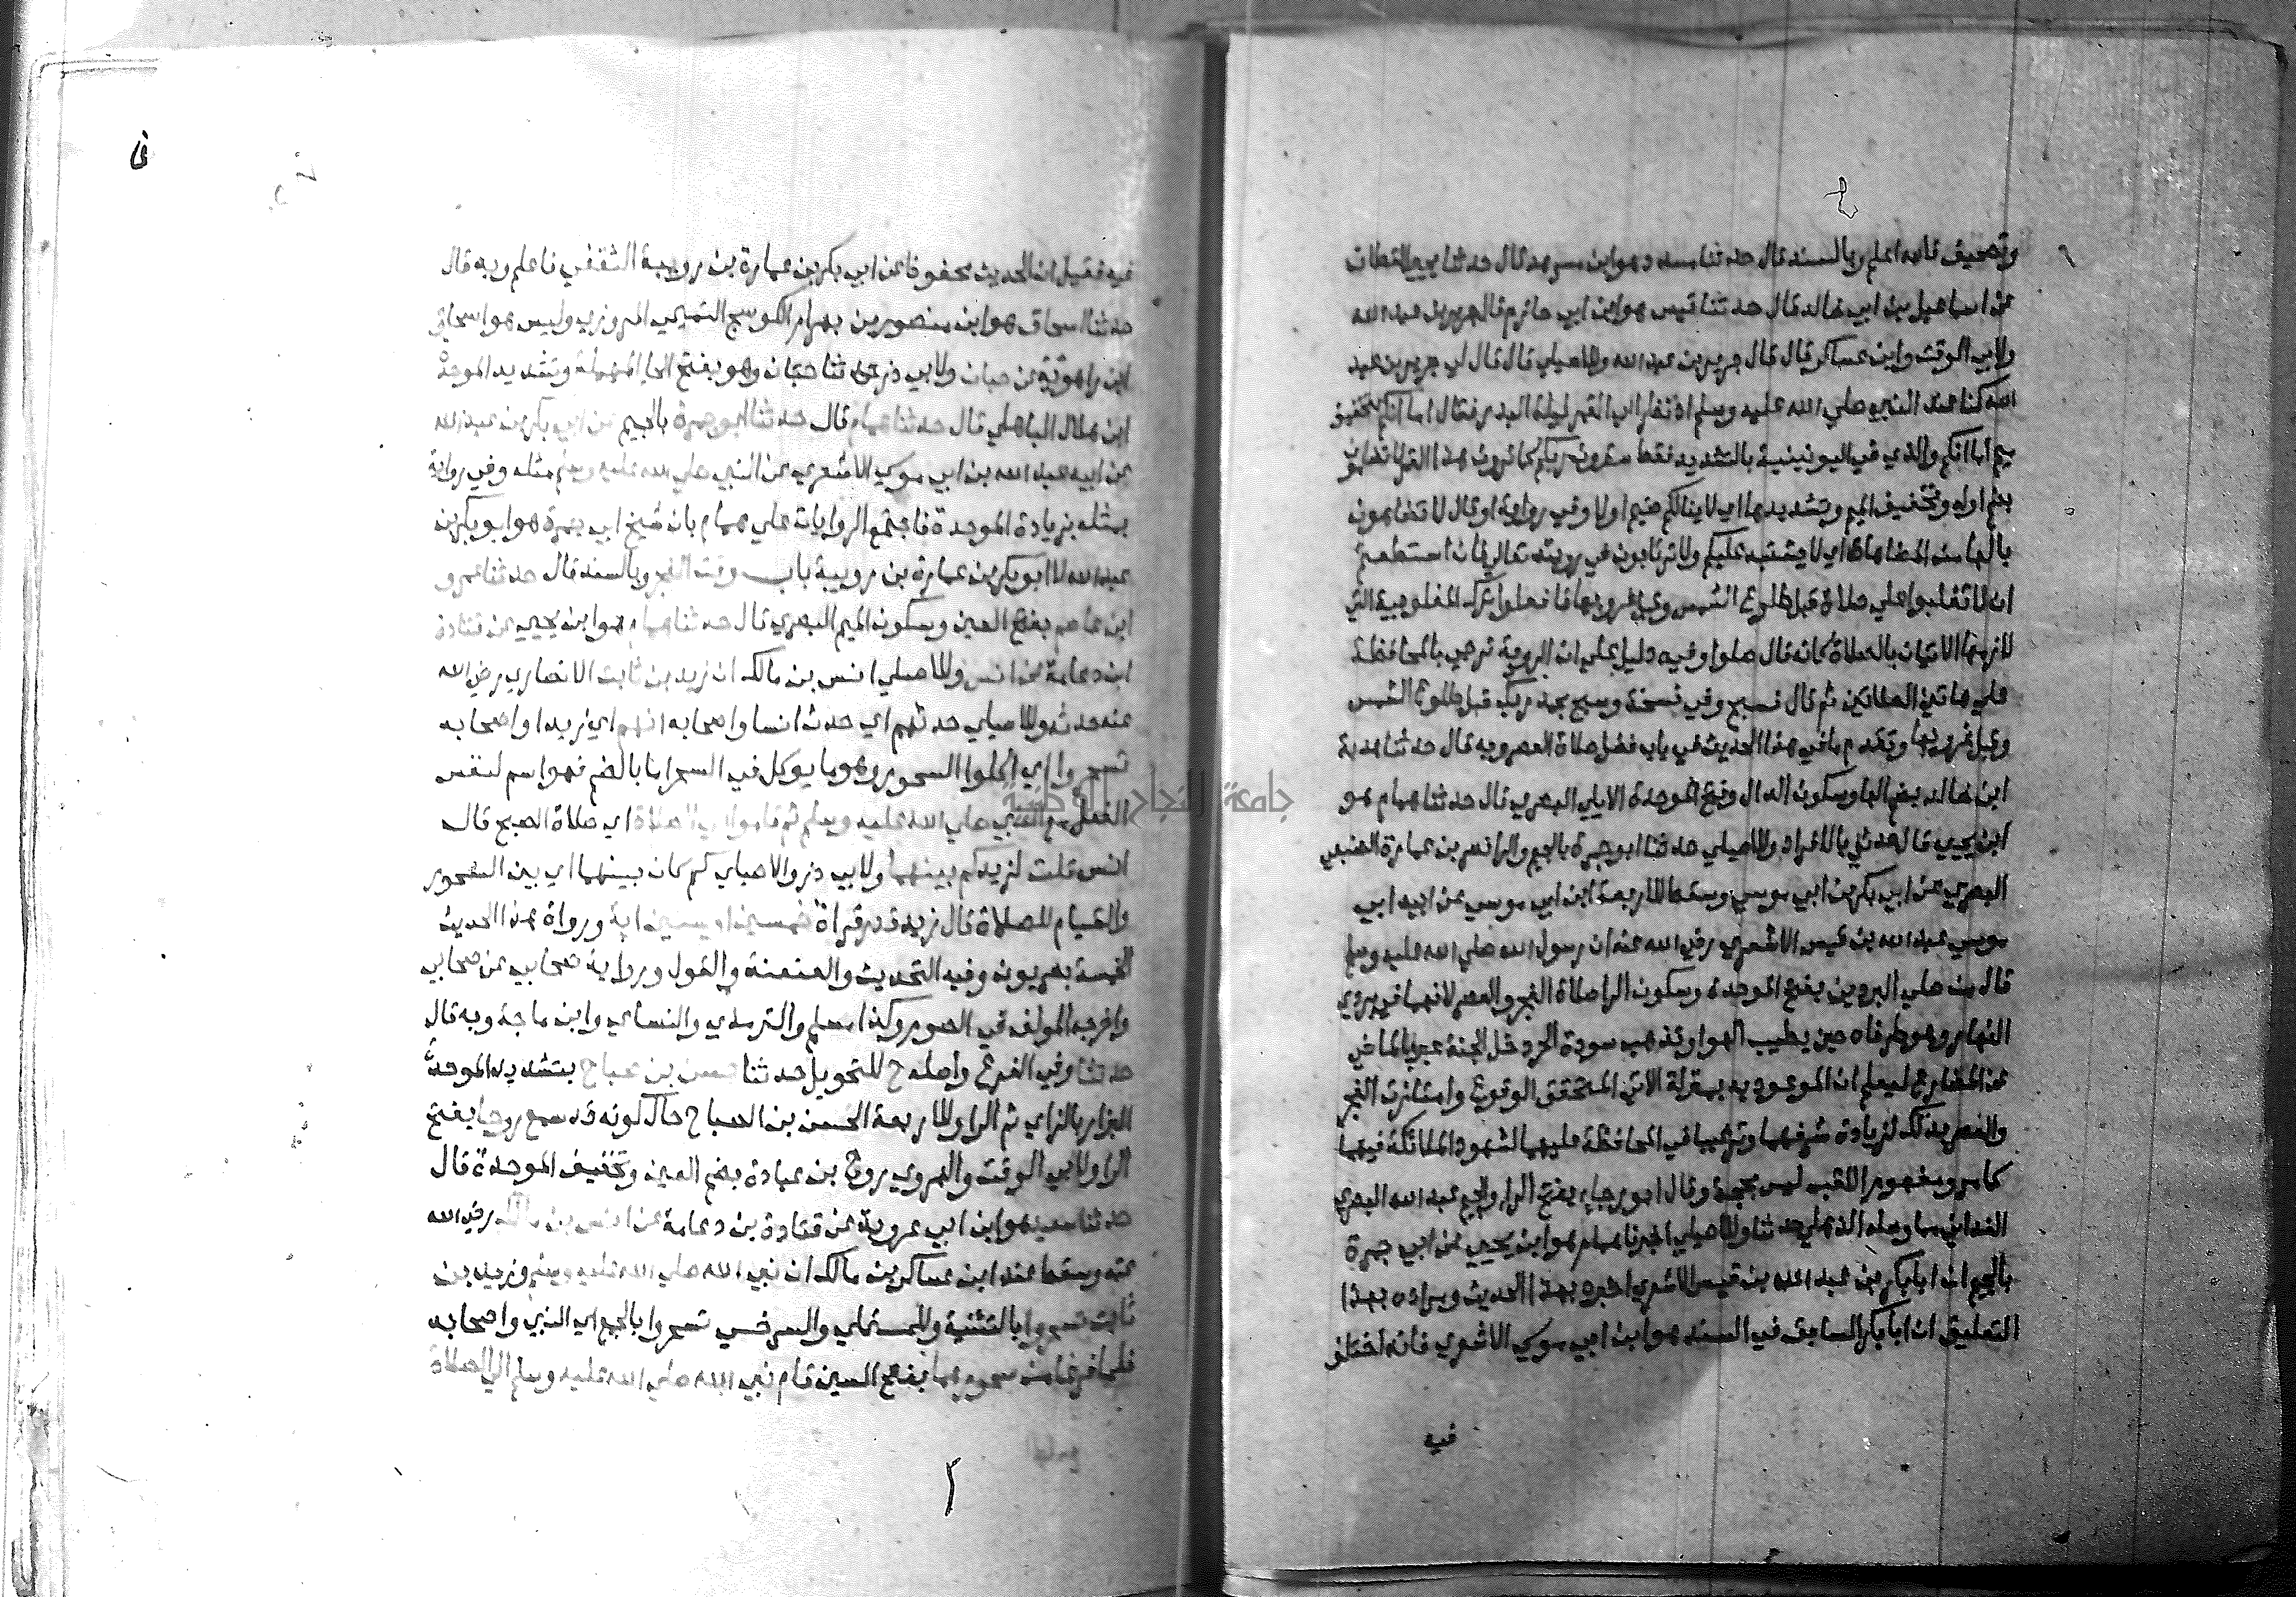 وتصحيف قاله اعلم وبالسند قال حدثنا مسدد هو ابن مسرهد قال حدثنا يحيي القطان
عن اسماعيل بن ابي خالد قال حدثنا قيس هو ابن ابي حازم قال جرير بن عبد الله
ولابي الوقت وابن عساكر قال قال جرير بن عبد الله وللاصيلي قال قال لي جرير بن عبد
الله كنا عند النبي صلي الله عليه وسلم اذ نظر الي القمر ليلة البدر فقال اما انكم بتخفيف
ميم اما انكم والذي في اليونينية بالتشديد فقط سترون ربكم كما ترون هذا القمر لا تضامون
بضم اوله وتخفيف الميم وبتشديدها اي لا ينالكم ضيم اولا وفي رواية او قال لا تضاهون
بالها من المضاهاة اي لا يشتبه عليكم ولا ترتابون في رويته تعالي فان استطعتم
ان لا تغلبوا علي صلاة قبل طلوع الشمس وقبل غروبها فافعلوا ترك المغلوبية التي
لازمها الاتيان بالصلاة كانه قال صلوا وفيه دليل علي ان الروية ترجي بالمحافظة
علي هاتين الصلاتين ثم قال فسبح وفي نسخة وسبح بحمد ربك قبل طلوع الشمس
وقبل غروبها وتقدم ما في هذا الحديث في باب فضل صلاة العصر وبه قال حدثنا هدبة
ابن خالد بضم الها وسكون الدال وفتح الموحدة الايلي البصري قال حدثنا همام هو
ابن يحيي قال حدثني بالافراد وللاصيلي حدثنا ابو جمرة بالجيم والرا نصر بن عمارة الضبعي
البصري عن ابي بكر بن ابي موسي وسقط للاربعة ابن ابي موسي عن ابيه ابي
موسي عبد الله بن قيس الاشعري رضي الله عنه ان رسول الله صلي الله عليه وسلم
قال من صلي البردين بفتح الموحدة وسكون الرا صلاة الفجر والعصر لانهما في بردي
النهار وهو طرفاه حين يطيب الهوا وتذهب سورة الحر دخل الجنة عبر بالماضي
عن المضارع ليعلم ان الموعود به بمنزلة الاتي المتحقق الوقوع وامتازت الفجر
والعصر بذلك لزيادة شرفهما وترغيبا في المحافظة عليهما لشهود الملائكة فيهما
كما مر ومفهوم اللقب ليس بحجة وقال ابو رجاء بفتح الرا والجيم عبد الله البصري
الغداني مما وصله الذهلي حدثنا وللاصيلي اخبرنا همام هو ابن يحيي عن ابي جمرة
بالجيم ان ابا بكر بن عبد الله بن قيس الاشعري اخبره بهذا الحديث ومراده بهذا
التعليق ان ابا بكر السابق في السند هو ابن ابي موسي الاشعري فانه اختلف
فيه
فيه فقيل ان الحديث محفوظ عن ابي بكر بن عمارة بن رويبة الثقفي فاعلم وبه قال
حدثنا اسحاق هو ابن منصور بن بهرام الكوسج التميمي المروزي وليس هو اسحاق
ابن راهويه عن حبان ولابي ذر حدثنا حبان وهو بفتح الحا المهملة وتشديد الموحدة
ابن هلال الباهلي قال حدثنا همام قال حدثنا ابو جمرة بالجيم عن ابي بكر بن عبد الله
عن ابيه عبد الله بن ابي موسي الاشعري عن النبي صلي الله عليه وسلم مثله وفي رواية
بمثله بزيادة الموحدة فاجتمع الروايات علي همام بان شيخ ابي جمرة هو ابو بكر بن
عبد الله لا ابو بكر بن عمارة بن رويبة باب وقت الفجر وبالسند قال حدثنا عمرو
ابن عاصم بفتح العين وسكون الميم البصري قال حدثنا همام هو ابن يحيي عن قتادة
ابن دعامة عن انس وللاصيلي انس بن مالك ان زيد بن ثابت الانصاري رضي الله
عنه حدثه وللاصيلي حدثهم اي حدث انسا واصحابه انهم اي زيدا واصحابه
تسحروا اي اكلوا السحور وهو ما يوكل في السحر اما بالضم فهو اسم لنفس
الفعل مع النبي صلي الله عليه وسلم ثم قاموا الي الصلاة اي صلاة الصبح قال
انس قلت لزيد كم بينهما ولابي ذر والاصيلي كم كان بينهما اي بين السحور
والقيام للصلاة قال زيد قدر قراة خمسين او ستين اية ورواة هذا الحديث
الخمسة بصريون وفيه التحديث والعنعنة والقول ورواية صحابي عن صحابي
واخرجه المولف في الصوم وكذا مسلم والترمذي والنساي وابن ماجة وبه قال
حدثنا وفي الفرع واصله ح للتحويل حدثنا حسن بن صباح بتشديد الموحدة
البزار بالزاي ثم الرا وللاربعة الحسن بن الصباح حال كونه قد سمع روحا بفتح
الرا ولابي الوقت والهروي روح بن عبادة بضم العين وتخفيف الموحدة قال
حدثنا سعيد هو ابن ابي عروبة عن قتادة بن دعامة عن انس بن مالك رضي الله
عنه وسقط عند ابن عساكر بن مالك ان نبي الله صلي الله عليه وسلم وزيد بن
ثابت تسحرا بالتثنية وللمستملي والسرخسي تسحروا بالجمع اي النبي واصحابه
فلما فرغا من سحورهما بفتح السين قام نبي الله صلي الله عليه وسلم الي الصلاة
جامعة النجاح الوطنية